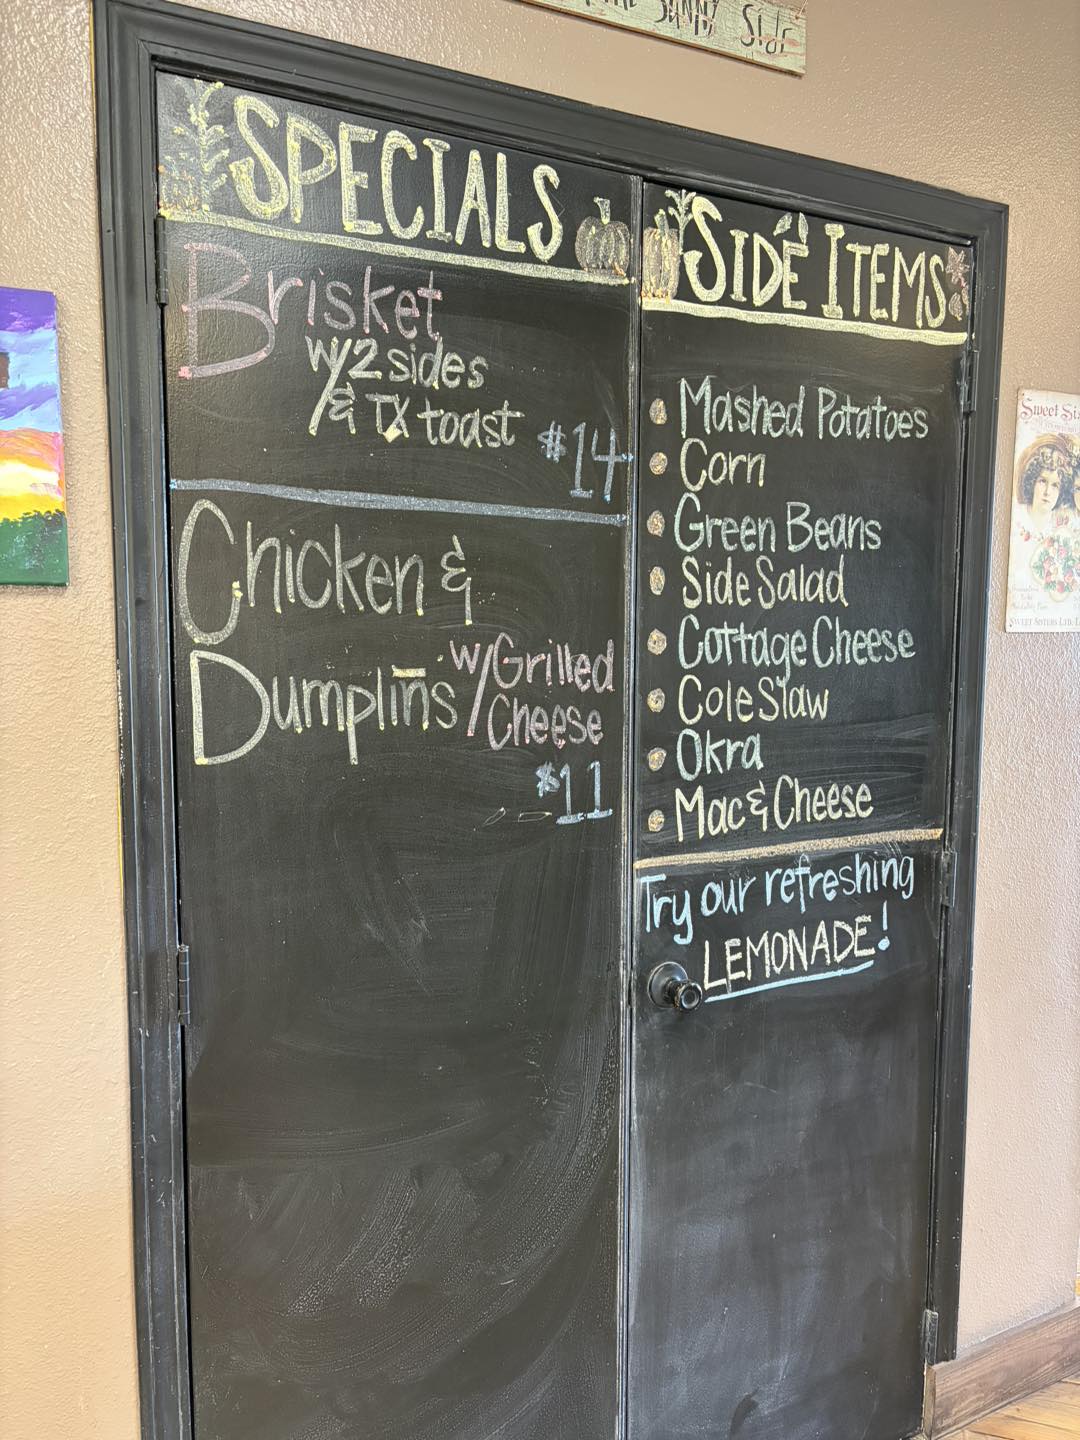 SUNNY SIDE
SPECIALS
Brisket
w/2 sides
& TX toast
$14
Chicken &
Dumplins w/Grilled
Cheese
$11
SIDE ITEMS
Mashed Potatoes
Corn
Green Beans
Side Salad
Cottage Cheese
Cole Slaw
Okra
Mac & Cheese
Try our refreshing
LEMONADE!
Sweet
SWEET SISTERS LTD.